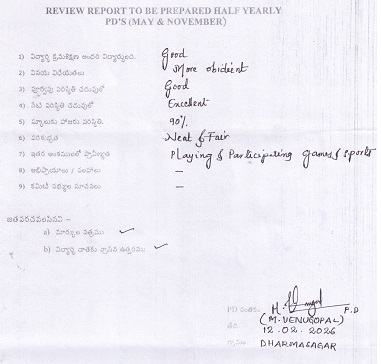 REVIEW REPORT TO BE PREPARED HALF YEARLY
PD'S (MAY & NOVEMBER)
1) విద్యార్థి క్రమశిక్షణ అందరి విద్యార్థులది. Good
2) వినయ విధేయతలు More obidient
3) పూర్వపు పరిస్థితి చదువులో Good
4) నేటి పరిస్థితి చదువులో Excellent
5) స్కూలుకు హాజరు పరిస్థితి. 90%
6) పరిశుభ్రత Neat & Fair
7) ఇతర అంశములలో ప్రావీణ్యత Playing & Participating games & sports
8) అభిప్రాయాలు / సలహాలు —
9) కమిటీ సభ్యుల సూచనలు —
జతపరచవలసినవి –
a) మార్కుల పత్రము ✓
b) విద్యార్థి దాతకు వ్రాసిన ఉత్తరము ✓
P.D
(M. VENUGOPAL)
12.02.2026
DHARMASAGAR